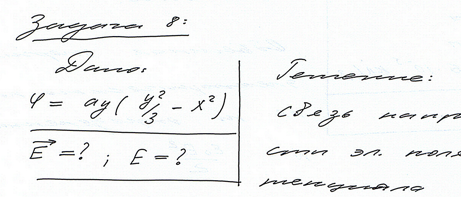 Задача 8:
Дано:
φ = ay( y²/3 - x²)
E⃗ = ? ; E = ?
Решение:
связь напр
сти эл. поля
тенциала